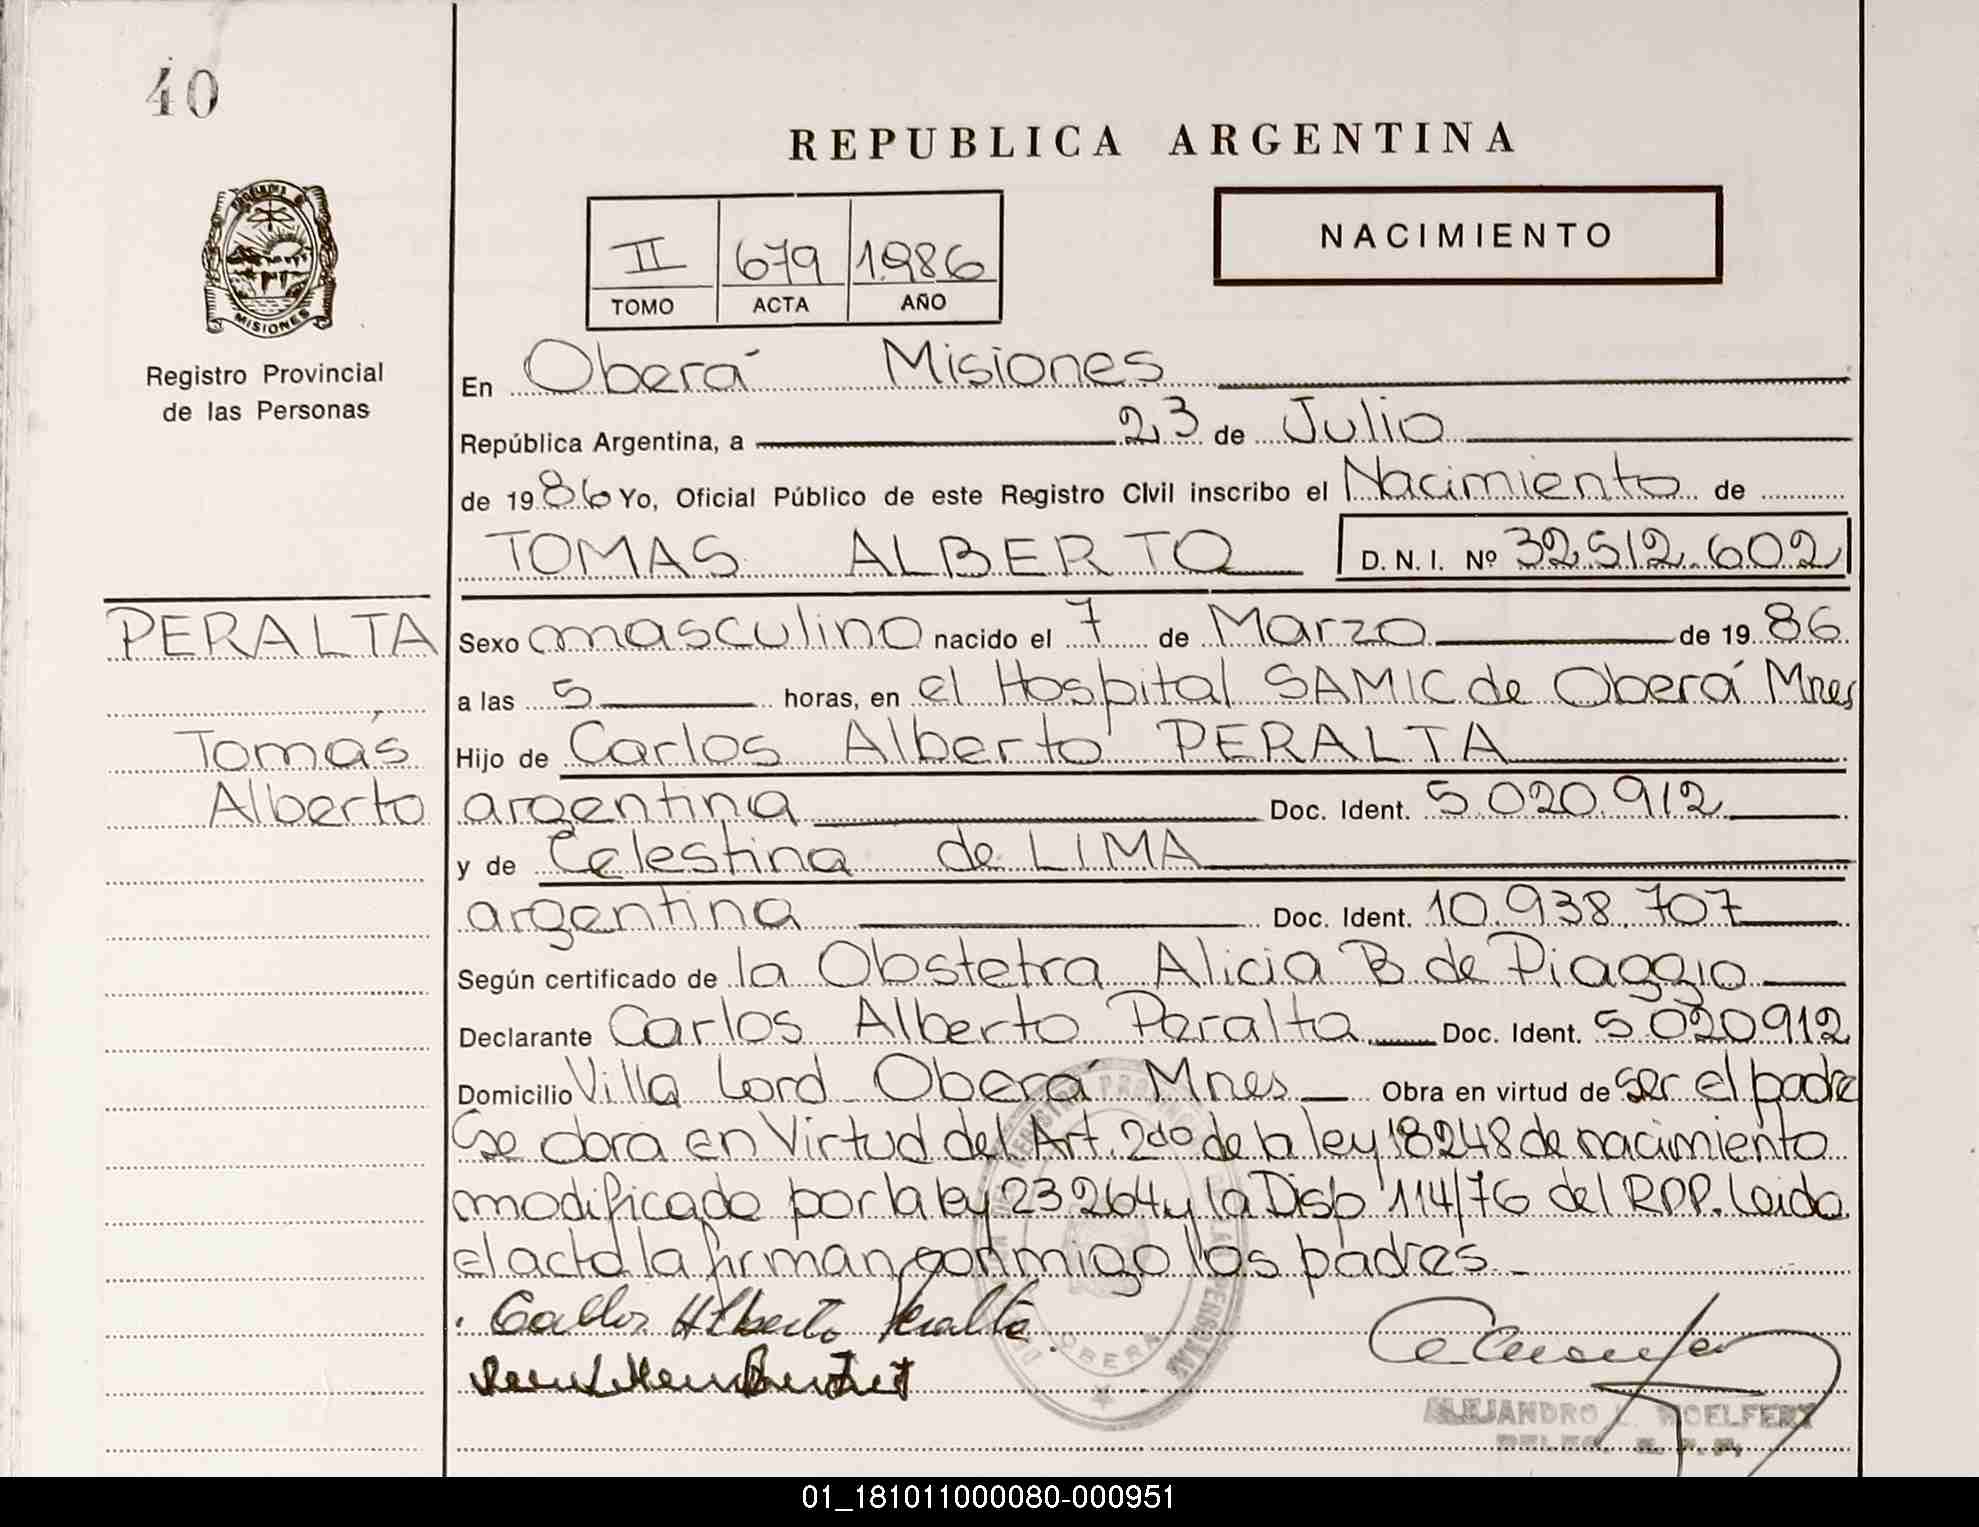 40
REPUBLICA ARGENTINA
NACIMIENTO
II 679 1.986
TOMO ACTA AÑO
MISIONES
Registro Provincial
de las Personas
En Oberá Misiones
República Argentina, a 23 de Julio
de 1986 Yo, Oficial Público de este Registro Civil inscribo el Nacimiento de
TOMAS ALBERTO D. N. I. Nº 32.512.602
PERALTA
Tomás
Alberto
Sexo masculino nacido el 7 de Marzo de 1986
a las 5 horas, en el Hospital SAMIC de Oberá Mnes
Hijo de Carlos Alberto PERALTA
argentina Doc. Ident. 5.020.912
y de Celestina de LIMA
argentina Doc. Ident. 10.938.707
Según certificado de la Obstetra Alicia B. de Piaggio
Declarante Carlos Alberto Peralta Doc. Ident. 5.020912
Domicilio Villa Lord Oberá Mnes Obra en virtud de ser el padre
Se obra en Virtud del Art. 2do de la ley 18248 de nacimiento
modificado por la ley 23.264 y la Disp 114/76 del RPP. Leida
el acta la firman conmigo los padres
Carlos Alberto Peralta
OBERA
ALEJANDRO L. WOELFERT
01_181011000080-000951